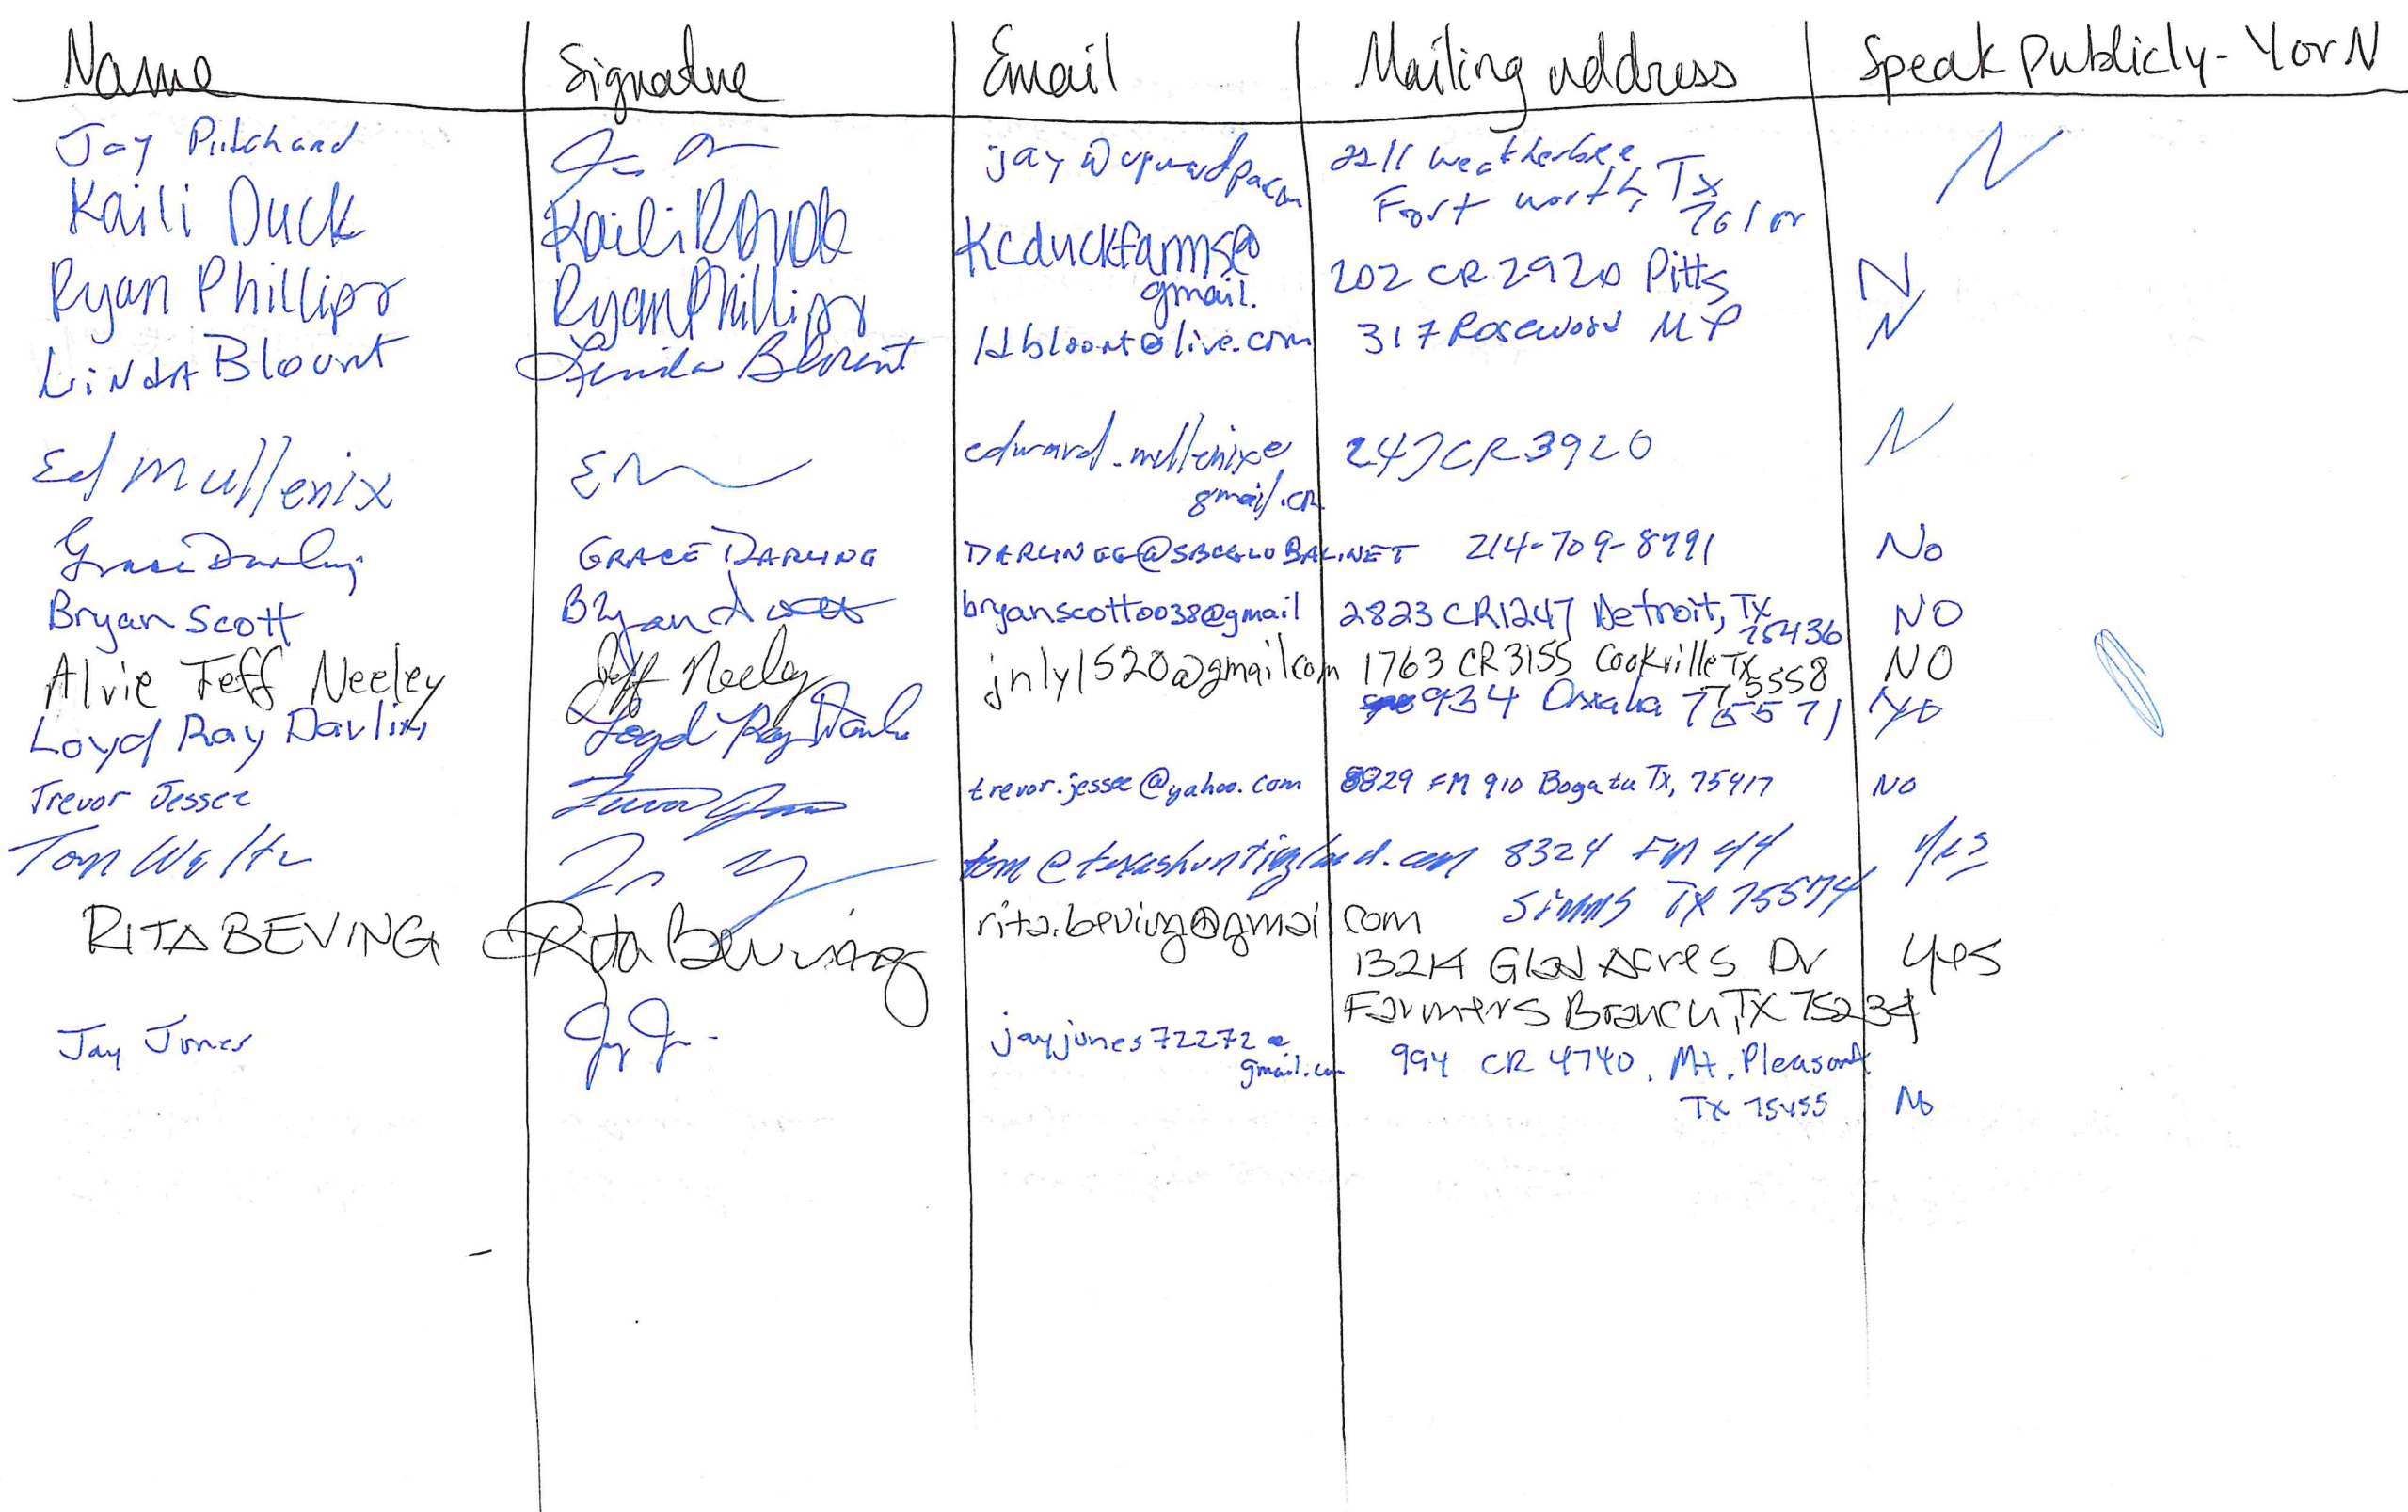 Name Signature Email Mailing address Speak Publicly - Y or N
Jay Pritchard jay@upwardpa.com 2211 Weatherbee N
Fort Worth, Tx
Kaili Duck Kaili R Duck Kcduckfarms@
gmail.
Ryan Phillips Ryan Phillips 202 CR 2920 Pitts N
Linda Blount Linda Blount 317 Rosewood MP N
Ed Mullenix EM edward.mullenix@ 247 CR 3920 N
gmail.com
Grace Darling GRACE DARLING DARLINGG@SBCGLOBAL.NET 214-709-8791 No
Bryan Scott Bryan Scott bryanscott0038@gmail 2823 CR1247 Detroit, TX NO
75436
Alvie Jeff Neeley Jeff Neeley jnly1520@gmailcom 1763 CR 3155 Cookville TX NO
75558
Loyd Ray Darling Loyd Ray Darling 934 Omaha TX
75571
Trevor Jessee trevor.jessee@yahoo.com 8829 FM 910 Bogata Tx, 75417 NO
Tom tom@texashuntingland.com 8324 FM 44 Yes
Simms TX 75574
RITA BEVING Rita Beving rita.beving@gmail.com
13214 Glad Acres Dr Yes
Farmers Branch, TX 75234
Jay Jones jayjones72272@
gmail.com 994 CR 4740, Mt. Pleasant
TX 75455 No